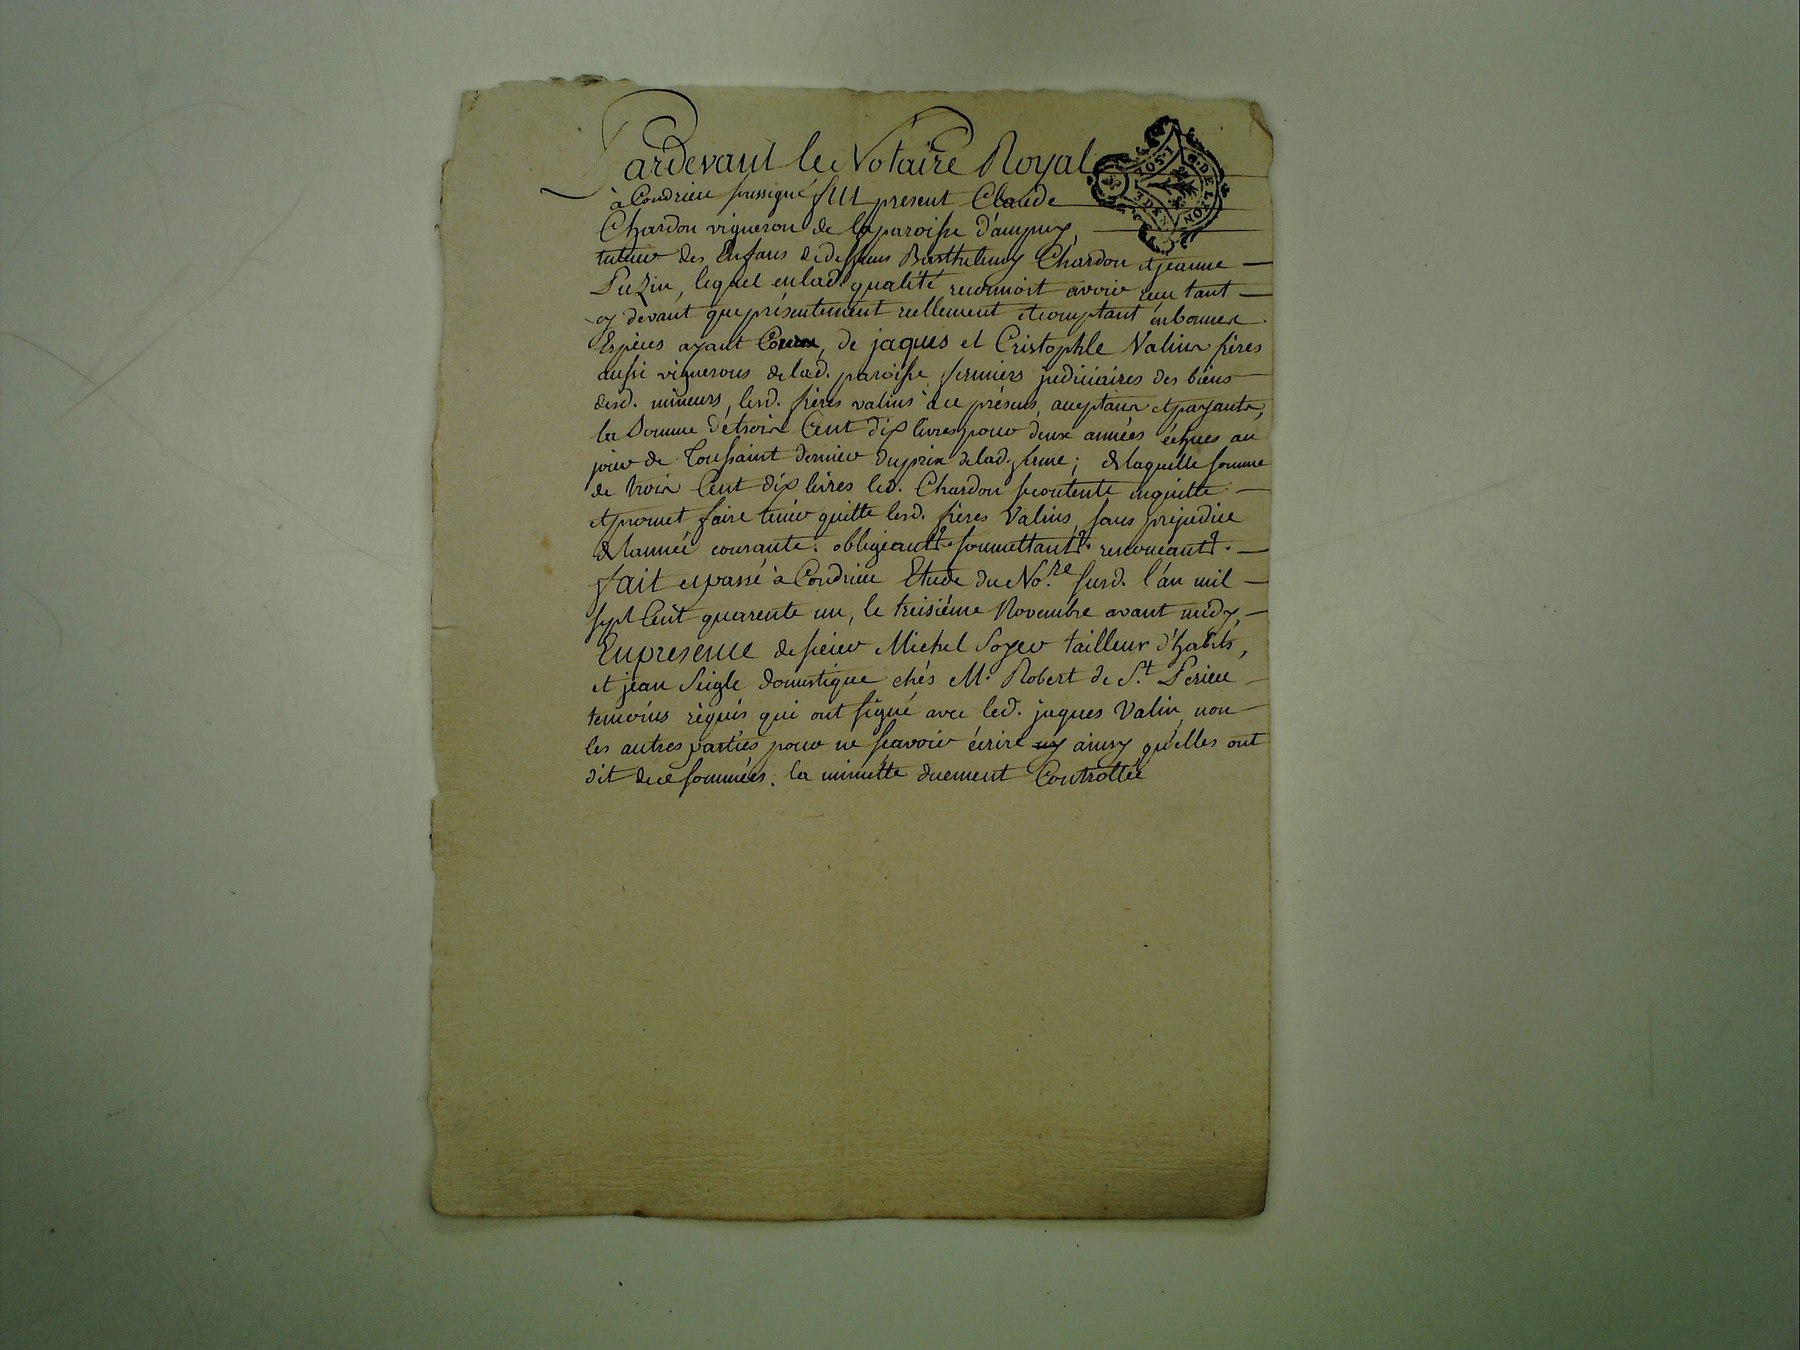 Pardevant le Notaire Royal
à Condrieu soussigné fut present Claude
Chardon vigneron de la paroisse d'ampuy,
tuteur des Enfans de deffuns Barthelemy Chardon et jeanne
Puzin, lequel en lad. qualité reconnoit avoir reçu tant
cy devant que présentement réellement et comptant en bonnes
Espèces ayant Cours, de jaques et Cristophle Valins frères
aussi vignerons de lad. paroisse fermiers judiciaires des biens
desd. mineurs, lesd. frères valins à ce présens, acceptans et payants,
la Somme de trois Cent dix livres pour deux années échues au
jour de Toussaint dernier du prix de lad. ferme; de laquelle somme
de trois Cent dix livres led. Chardon se contente en quitte
et promet faire tenir quitte lesd. frères Valins, sans préjudice
de l'année courante. obligeant soumettant renonceant
fait et passé à Condrieu Etude du No.re susd. l'an mil
sept Cent quarente un, le treisième Novembre avant midy,
En presence de sieur Michel Soyer tailleur d'habits,
et jean Seigle domestique chés Mr. Robert de St.
temoins requis qui ont signé avec led. jaques Valin, non
les autres parties pour ne sçavoir écrire ny ainsy qu'elles ont
dit de ce sommées. la minutte duement Controllée